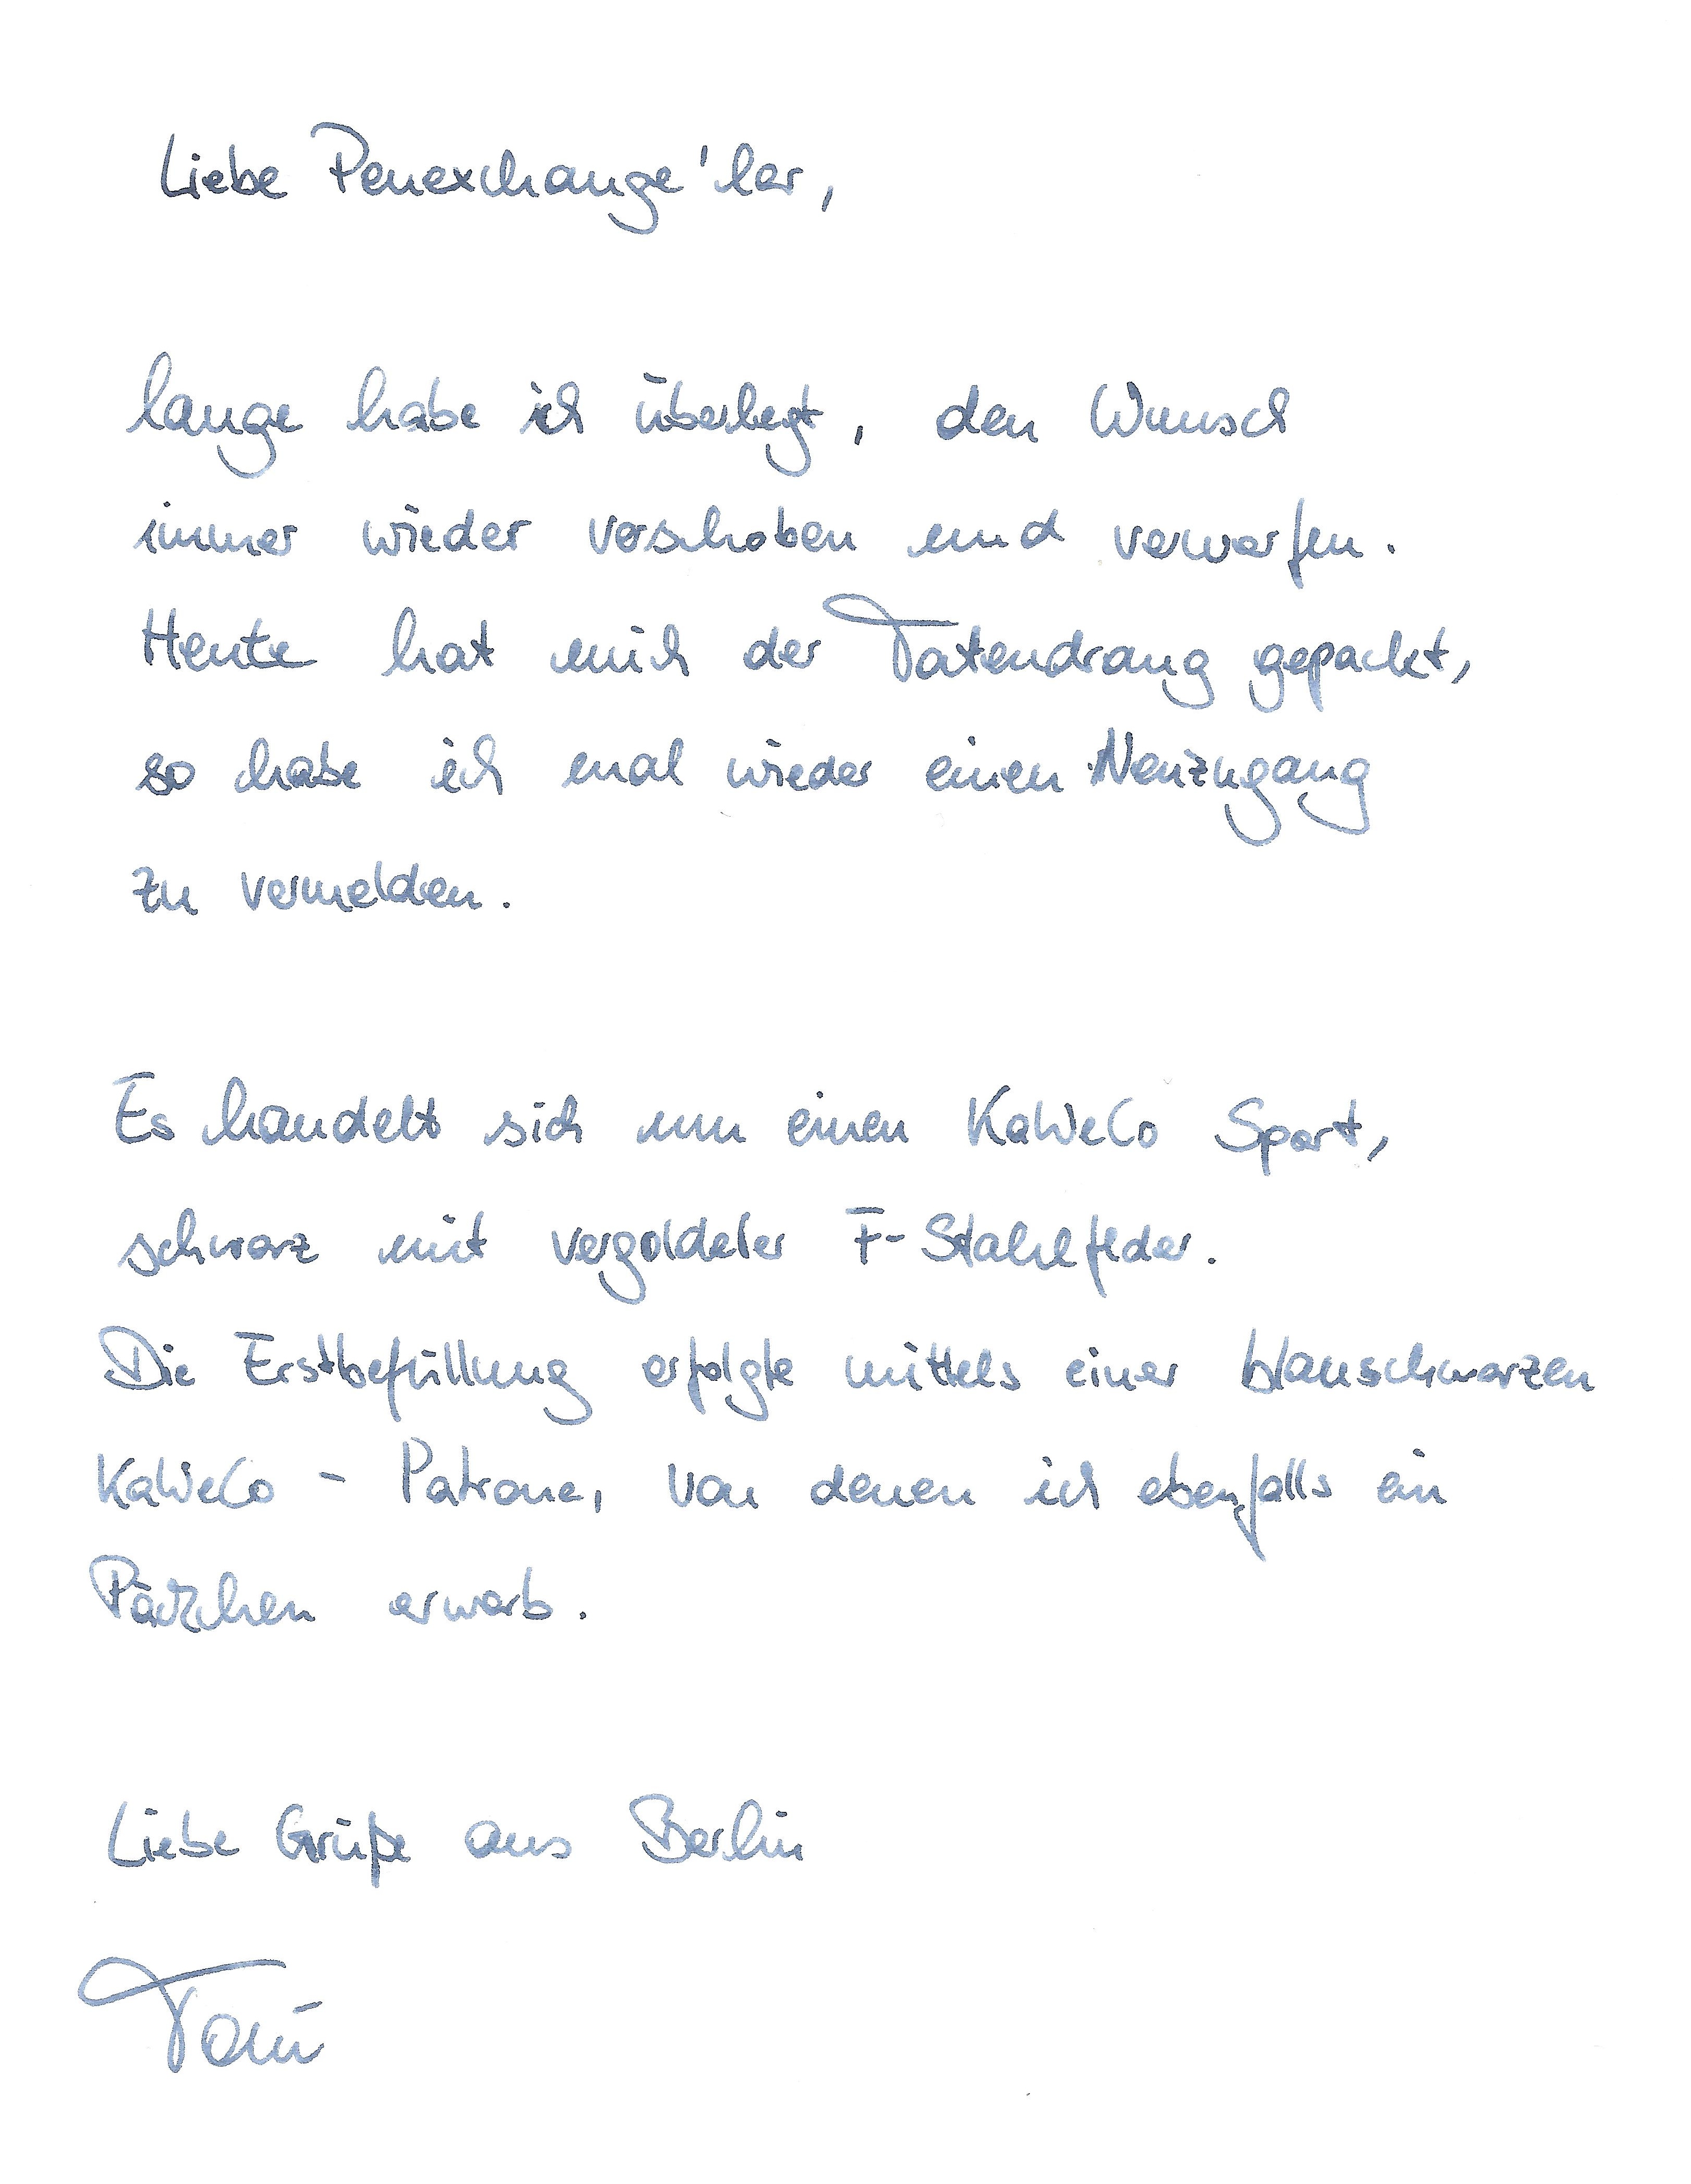 Liebe Penexchange'ler,
lange habe ich überlegt, den Wunsch
immer wieder verschoben und verworfen.
Heute hat mich der Tatendrang gepackt,
so habe ich mal wieder einen Neuzugang
zu vermelden.
Es handelt sich um einen KaWeCo Sport,
schwarz mit vergoldeter F-Stahlfeder.
Die Erstbefüllung erfolgte mittels einer blauschwarzen
KaWeCo - Patrone, von denen ich ebenfalls ein
Päckchen erwarb.
Liebe Grüße aus Berlin
Toni